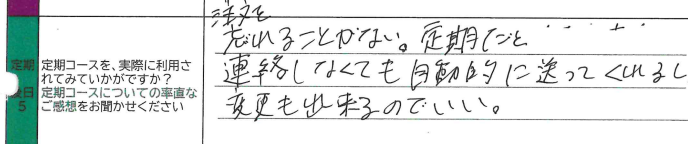 注文を
忘れることがない。定期だと
連絡しなくても自動的に送ってくれるし
変更も出来るのでいい。
定期
5
定期コースを、実際に利用さ
れてみていかがですか?
定期コースについての率直な
ご感想をお聞かせください